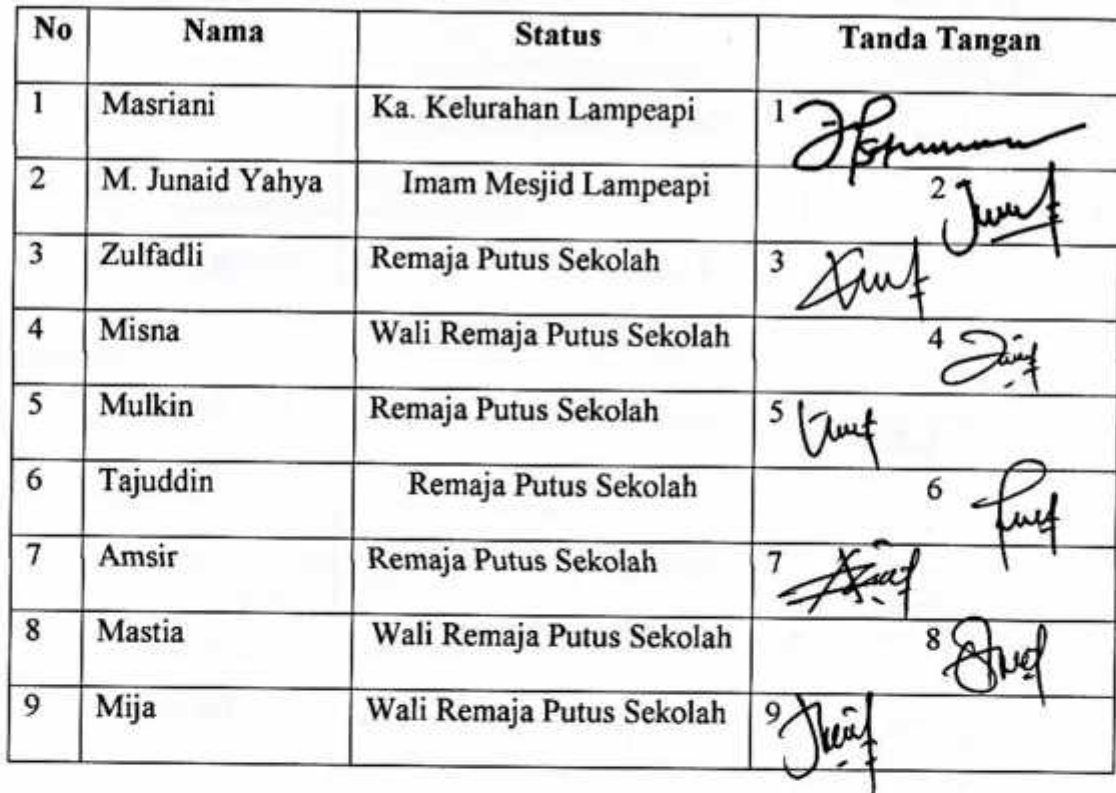 No Nama Status Tanda Tangan
1 Masriani Ka. Kelurahan Lampeapi 1
2 M. Junaid Yahya Imam Mesjid Lampeapi 2
3 Zulfadli Remaja Putus Sekolah 3
4 Misna Wali Remaja Putus Sekolah 4
5 Mulkin Remaja Putus Sekolah 5
6 Tajuddin Remaja Putus Sekolah 6
7 Amsir Remaja Putus Sekolah 7
8 Mastia Wali Remaja Putus Sekolah 8
9 Mija Wali Remaja Putus Sekolah 9